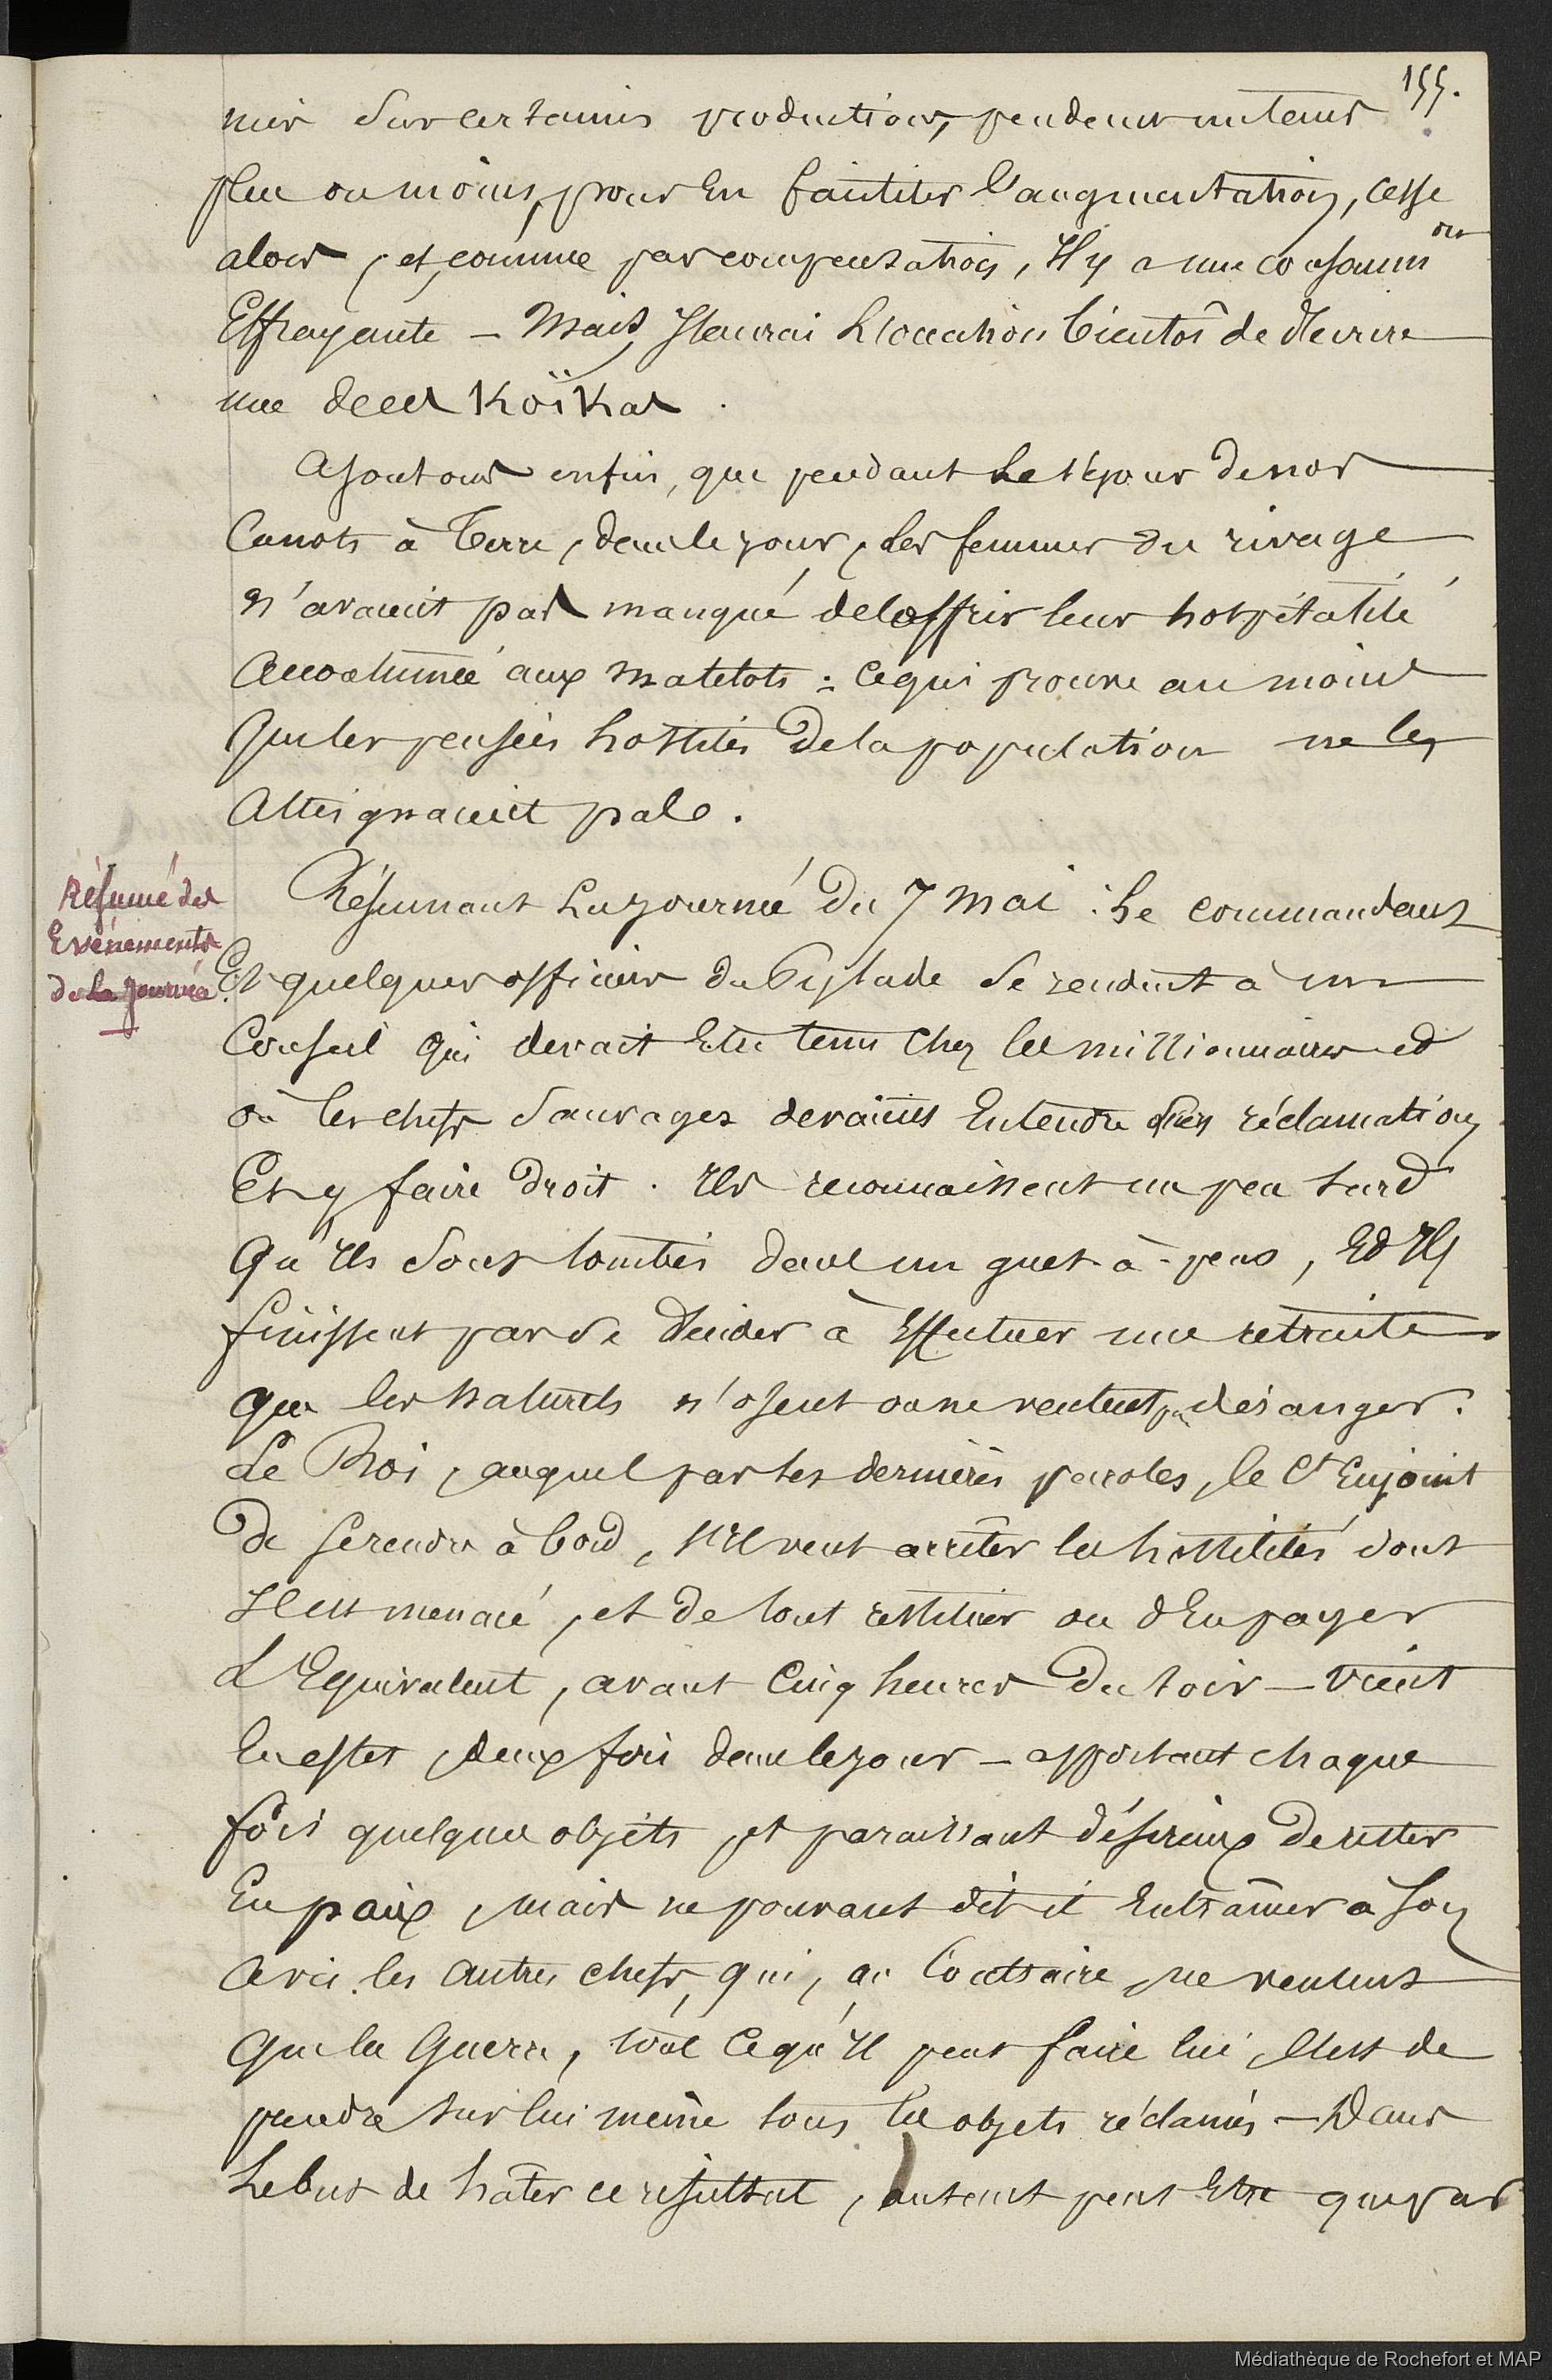 155.
mis sur certaines productions, pendant un temps
plus ou moins, pour en faciliter l'augmentation, cesse
alors, et, comme par compensation, Il y a une consomm on
Effrayante — Mais, J'aurai l'occasion bientôt de décrire
une de ces Koïkas.
Ajoutons enfin, que pendant le séjour de nos
Canots à Terre, dans le jour, les femmes du rivage
n'avaient pas manqué de offrir leur hospitalité
accoutumée aux matelots : ce qui prouve au moins
que les pensées hostiles de la population ne les
atteignaient pas.
Résumé des
Evénements
de la Journée.
Résumant la journée du 7 mai : Le commandant
Et quelques officiers du Pylade se rendent à un
Conseil qui devait Etre tenu chez les missionnaires et
où les chefs sauvages devaient Entendre des réclamations
Et y faire droit. Ils reconnaissent un peu tard
qu'Ils sont tombés dans un guet-à-pens, Et Ils
finissent par se décider à Effectuer une retraite
que les naturels n'osent ou ne veulent pas déranger.
Le Roi, auquel par ses dernières paroles, le Ct Enjoint
de se rendre à bord, s'Il veut arrêter les hostilités dont
Il est menacé, et de tout restituer ou d'En payer
L'Equivalent, avant Cinq heures du soir — vient
En effet, deux fois dans le jour — apportant chaque
fois quelques objets, et paraissant désireux de rester
En paix, mais ne pouvant dit il Entraîner à son
avis les autres chefs, qui, au Contraire, ne veulent
que la Guerre, tout ce qu'Il peut faire lui, C'est de
prendre sur lui même tous les objets réclamés — Dans
Le but de hâter ce résultat, autant peut Etre que par
Médiathèque de Rochefort et MAP